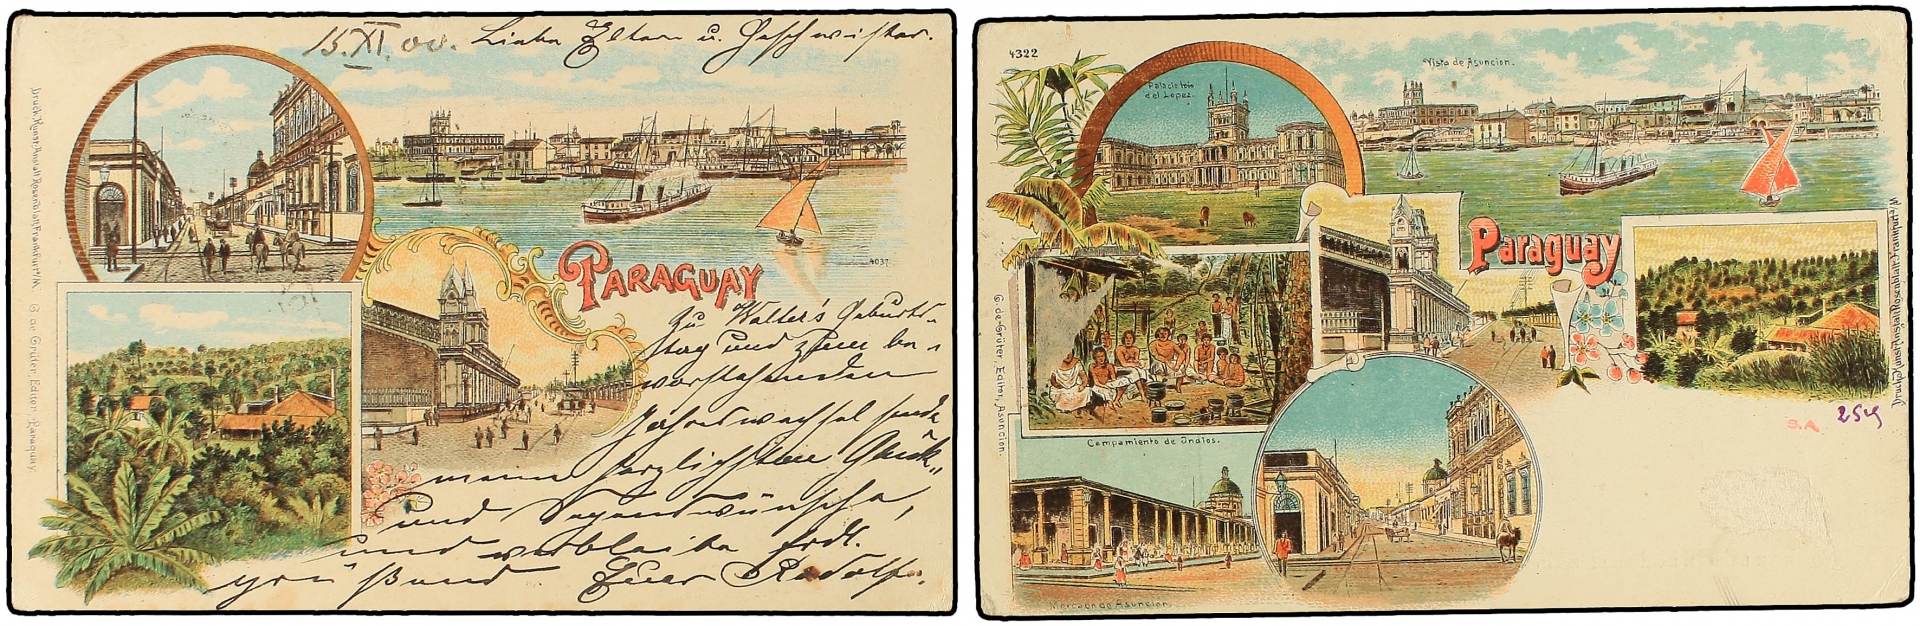 15.XI.00. Liebe Eltern u. Geschwister.
Druck. Kunst-Anstalt Rosenblatt, Frankfurt a/M.
G. de Grüter, Editor, Paraguay
4037
PARAGUAY
Zu Walter's Geburts-
tag und zum be-
vorstehenden
Jahreswechsel sende
meine herzlichsten Glück-
und Segenswünsche,
und verbleibe frdl.
grüßend Euer Rudolf.
4322
Palacio
del Lopez.
Vista de Asuncion.
Paraguay
G. de Grüter, Editor, Asuncion.
Druck. Kunst-Anstalt Rosenblatt, Frankfurt a/M.
Campamiento de Indios.
S.A
Mercado de Asuncion.